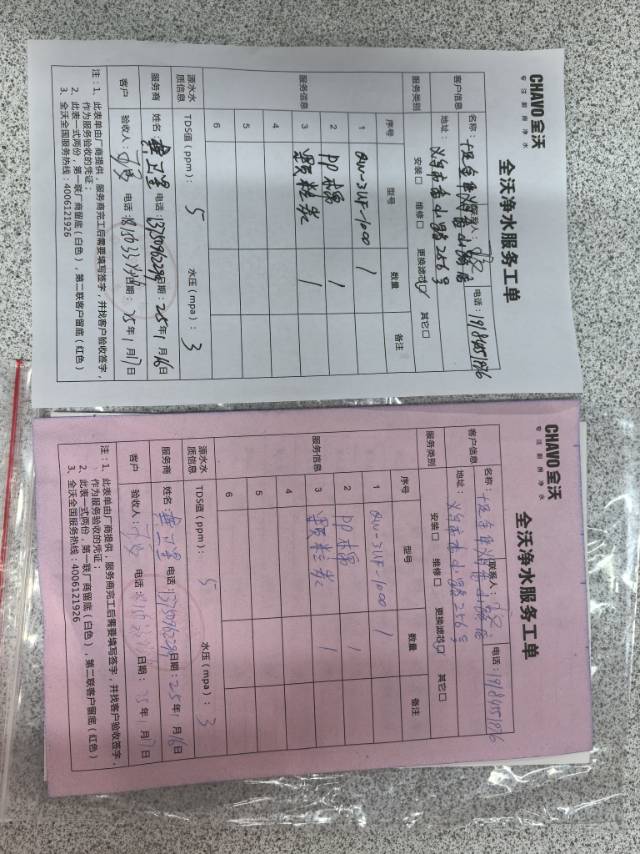 CHAVO全沃
专注厨房净水
全沃净水服务工单
客户信息
名称：
联系人：
电话：
地址：
256号
服务类别
安装□ 维修□ 更换滤芯☑ 其它□
服务信息
序号 型号 数量 备注
1 QW-3UF-1000 1
2 PP棉 1
3 颗粒炭 1
4
5
6
源水水质信息
TDS值（ppm）： 5 水压（mpa）： 3
服务商
姓名 电话 日期：25年1月16日
客户
验收人： 电话 日期：25年1月17日
注：1、此表单由厂商提供，服务商完工后需要填写签字，并找客户验收签字，
作为服务验收的凭证；
2、此表一式两份，第一联厂商留底（白色），第二联客户留底（红色）
3、全沃全国服务热线：4006121926
CHAVO全沃
专注厨房净水
全沃净水服务工单
客户信息
名称：
联系人：
电话：
地址：
256号
服务类别
安装□ 维修□ 更换滤芯☑ 其它□
服务信息
序号 型号 数量 备注
1 QW-3UF-1000 1
2 PP棉 1
3 颗粒炭 1
4
5
6
源水水质信息
TDS值（ppm）： 5 水压（mpa）： 3
服务商
姓名 电话 日期：25年1月16日
客户
验收人： 电话 日期：25年1月17日
注：1、此表单由厂商提供，服务商完工后需要填写签字，并找客户验收签字，
作为服务验收的凭证；
2、此表一式两份，第一联厂商留底（白色），第二联客户留底（红色）
3、全沃全国服务热线：4006121926